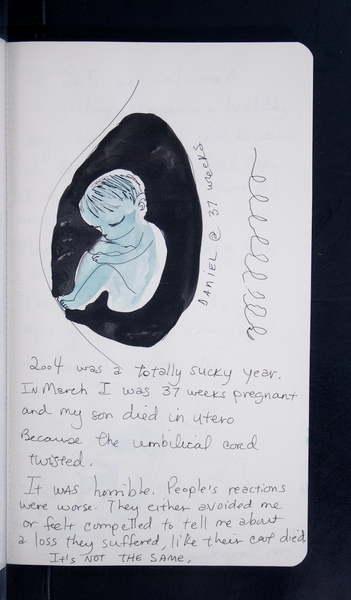 DANIEL @ 37 WEEKS
2004 was a totally sucky year.
IN March I was 37 weeks pregnant
and my son died in utero
Because the umbilical cord
twisted.
It was horrible. People's reactions
were worse. They either avoided me
or felt compelled to tell me about
a loss they suffered, like their cat died.
It's NOT THE SAME.